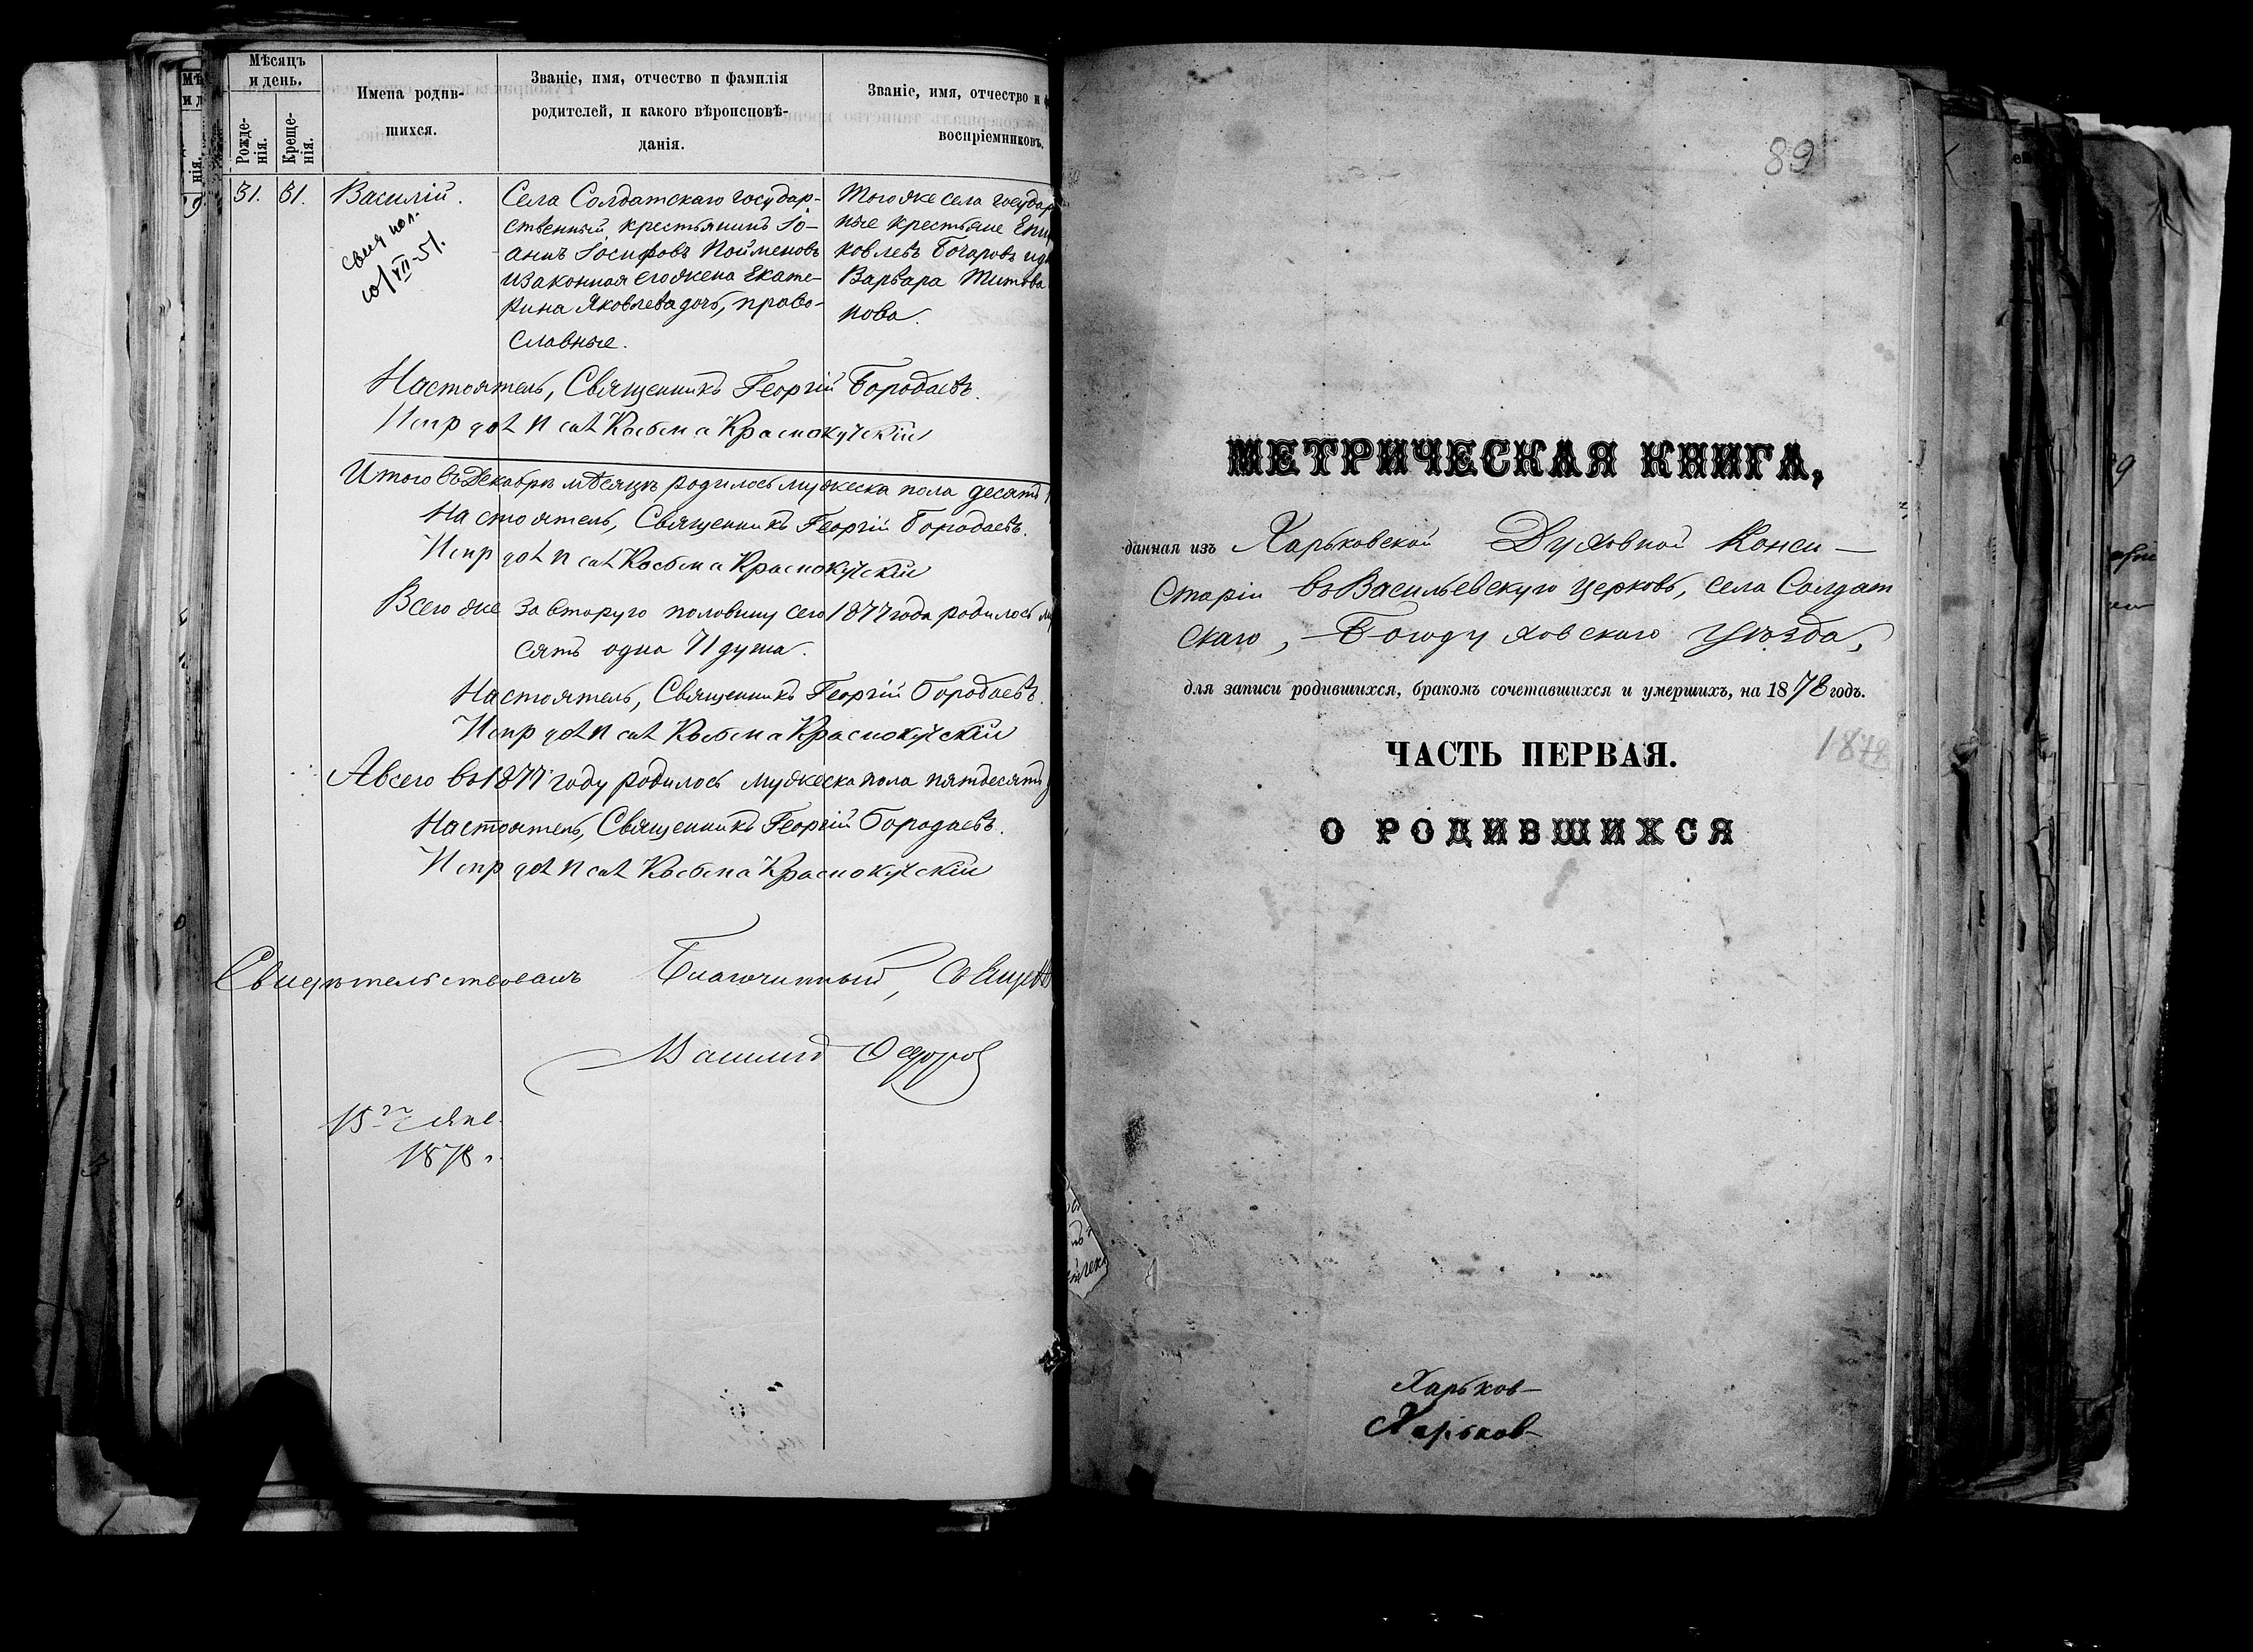 Мѣсяцъ
и день.
Рожде-
нія.
Креще-
нія.
Имена родив-
шихся.
Званіе, имя, отчество и фамилія
родителей, и какого вѣроисповѣ-
данія.
Званіе, имя, отчество и
воспріемниковъ.
31. 31. Василій.
10/XII-51.
Села Солдатскаго государ-
ственный крестьянинъ Іо-
аннъ Іосифовъ Пойменовъ
и законная его жена Екате-
рина Яковлева дочь, право-
славные.
Того же села государ
ные крестьяне
ковлевъ Бочаровъ и
Варвара Титова
нова.
Настоятель, Священникъ Георгій Бородаевъ.
Испр. дол. псал. Косьма Краснокутскій
Итого въ Декабрѣ мѣсяцѣ родилось мужеска пола десять
Настоятель, Священникъ Георгій Бородаевъ.
Испр. дол. псал. Косьма Краснокутскій
Всего же за вторую половину сего 1877 года родилось
сятъ одна 71 душа.
Настоятель, Священникъ Георгій Бородаевъ.
Испр. дол. псал. Косьма Краснокутскій
А всего въ 1877 году родилось мужеска пола пятьдесятъ
Настоятель, Священникъ Георгій Бородаевъ.
Испр. дол. псал. Косьма Краснокутскій
Свидѣтельствовалъ Благочинный, Священ
Василій Федоров
15го Янв.
1878 г.
89
МЕТРИЧЕСКАЯ КНИГА,
данная изъ Харьковской Духовной Конси-
сторіи въ Васильевскую церковь, села Солдат
скаго, Богодуховскаго уѣзда,
для записи родившихся, бракомъ сочетавшихся и умершихъ, на 1878 годъ.
ЧАСТЬ ПЕРВАЯ.
1878
О РОДИВШИХСЯ
Харьков-
Харьков-